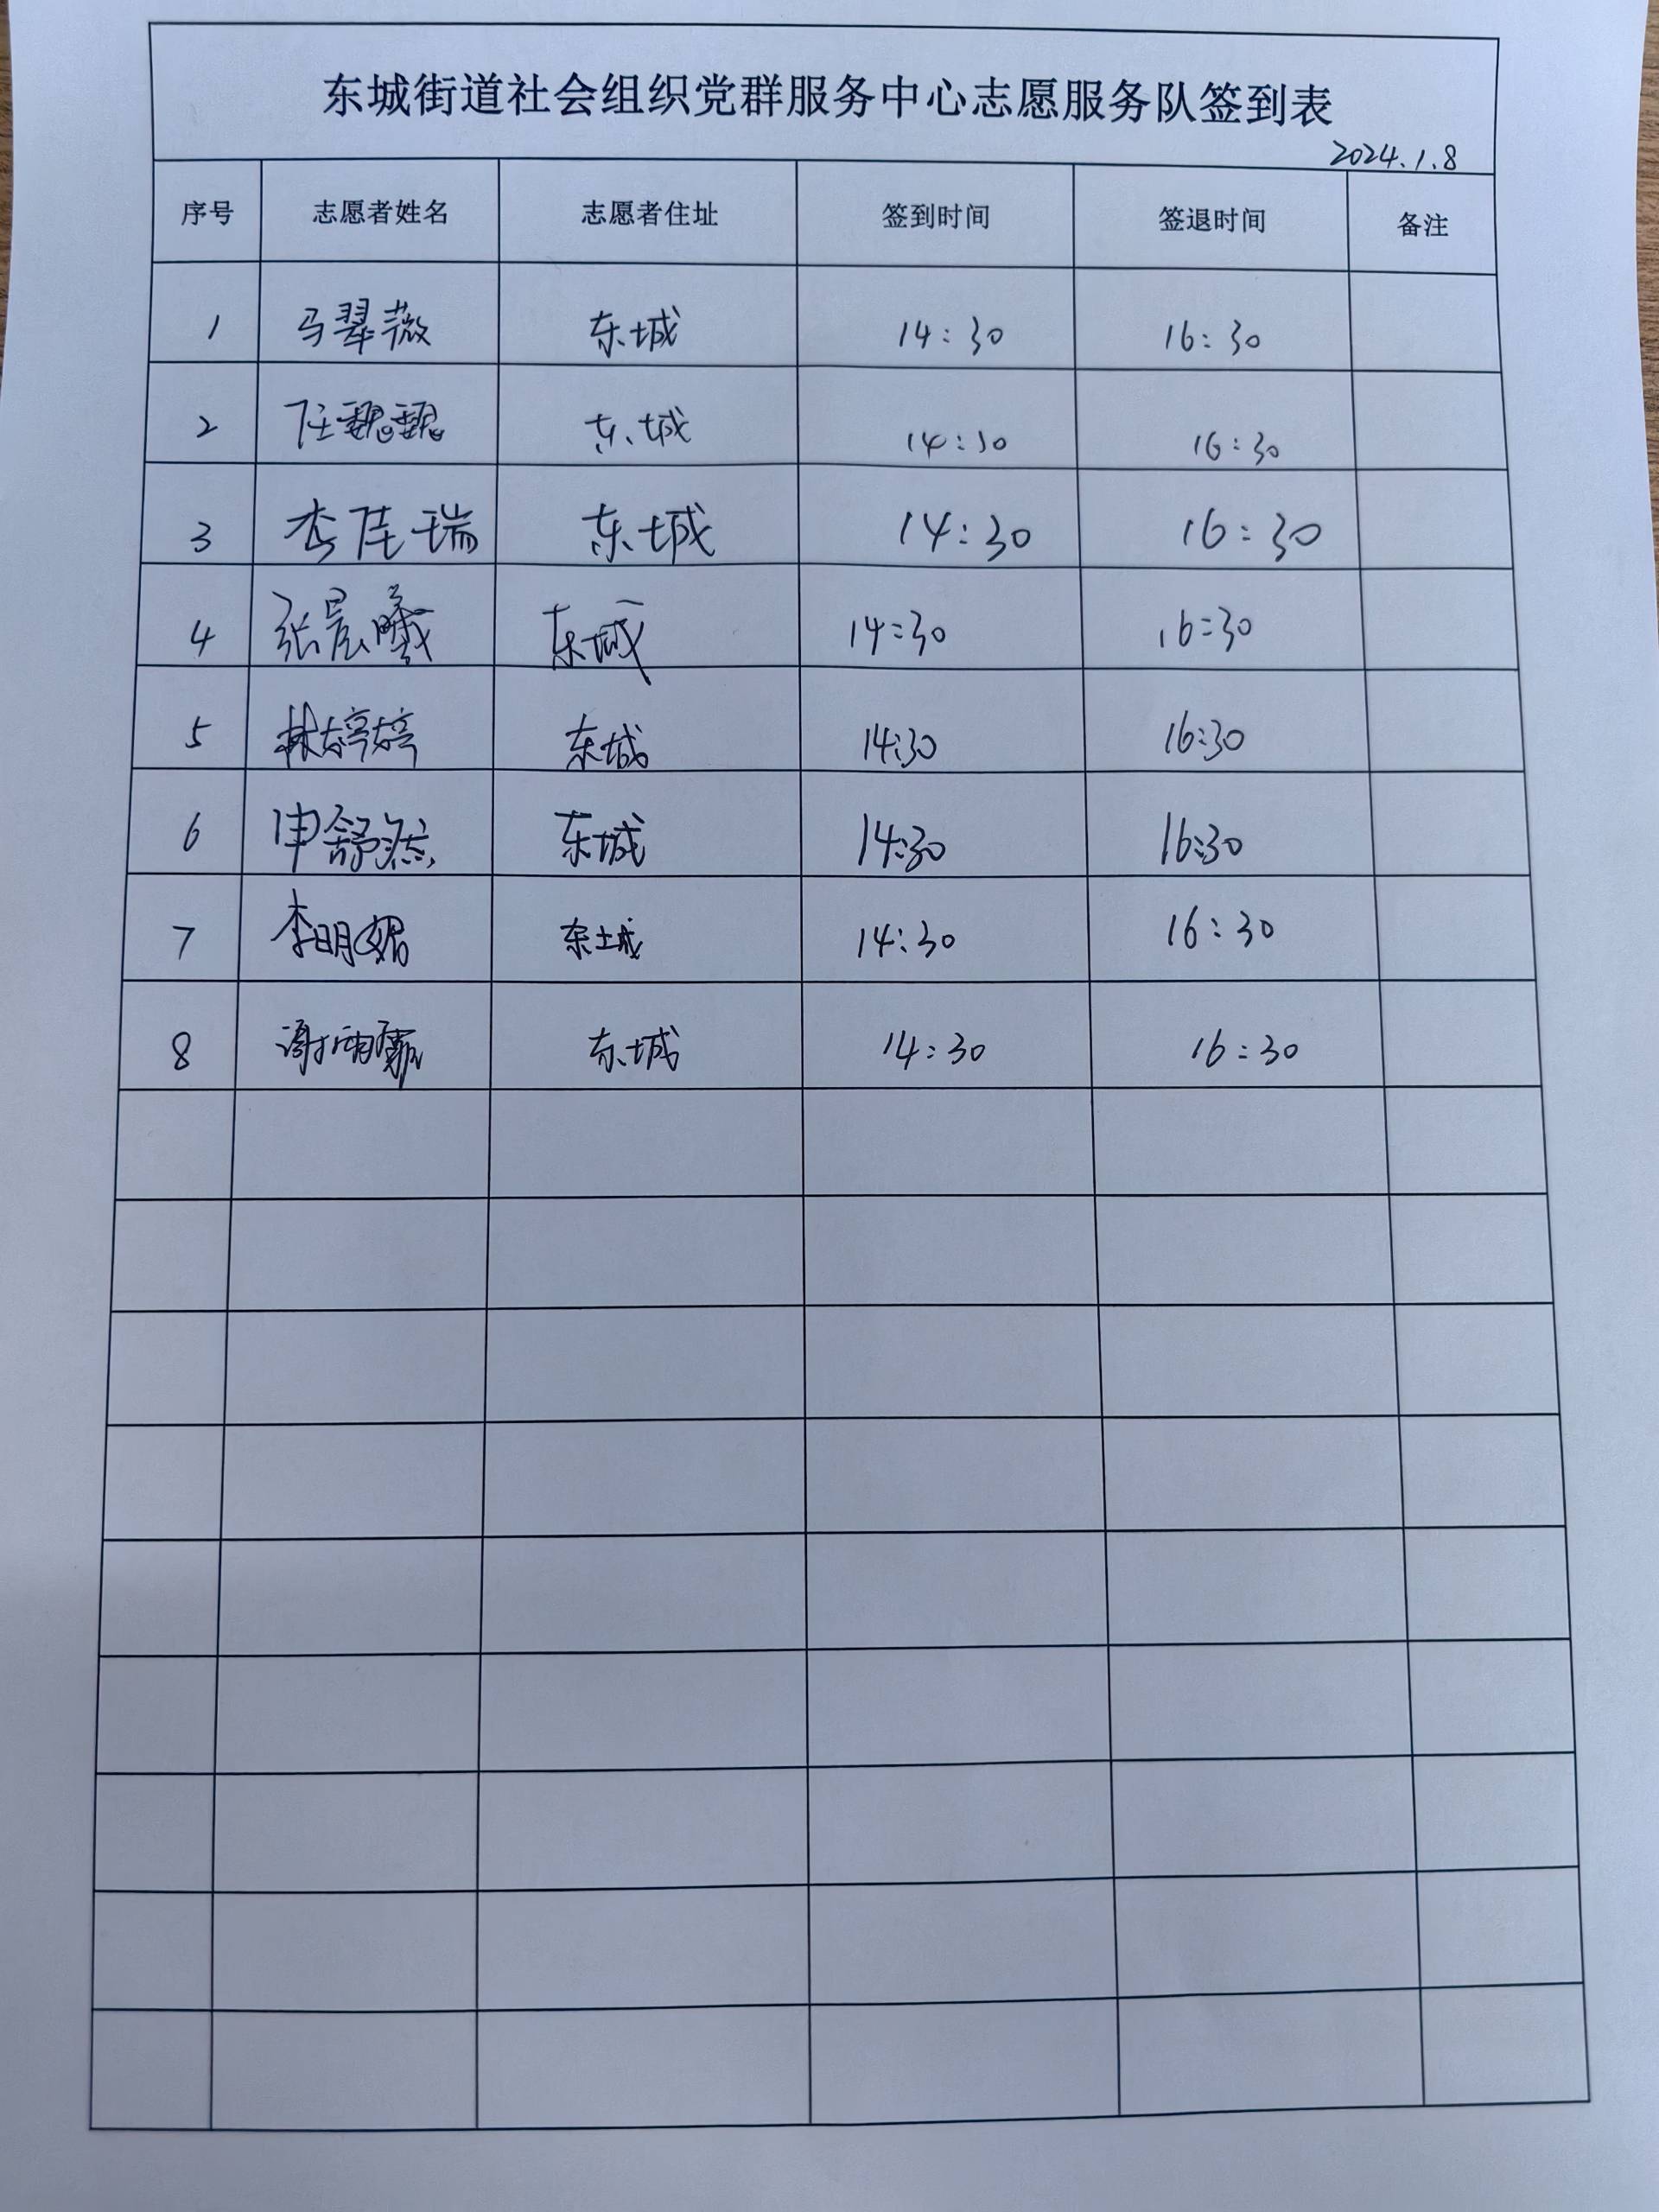 东城街道社会组织党群服务中心志愿服务队签到表
2024.1.8
序号 志愿者姓名 志愿者住址 签到时间 签退时间 备注
1 马翠薇 东城 14:30 16:30
2 任魏魏 东城 14:30 16:30
3 李佳瑞 东城 14:30 16:30
4 张晨曦 东城 14:30 16:30
5 林婷婷 东城 14:30 16:30
6 申舒 东城 14:30 16:30
7 李明媚 东城 14:30 16:30
8 谢雨霏 东城 14:30 16:30